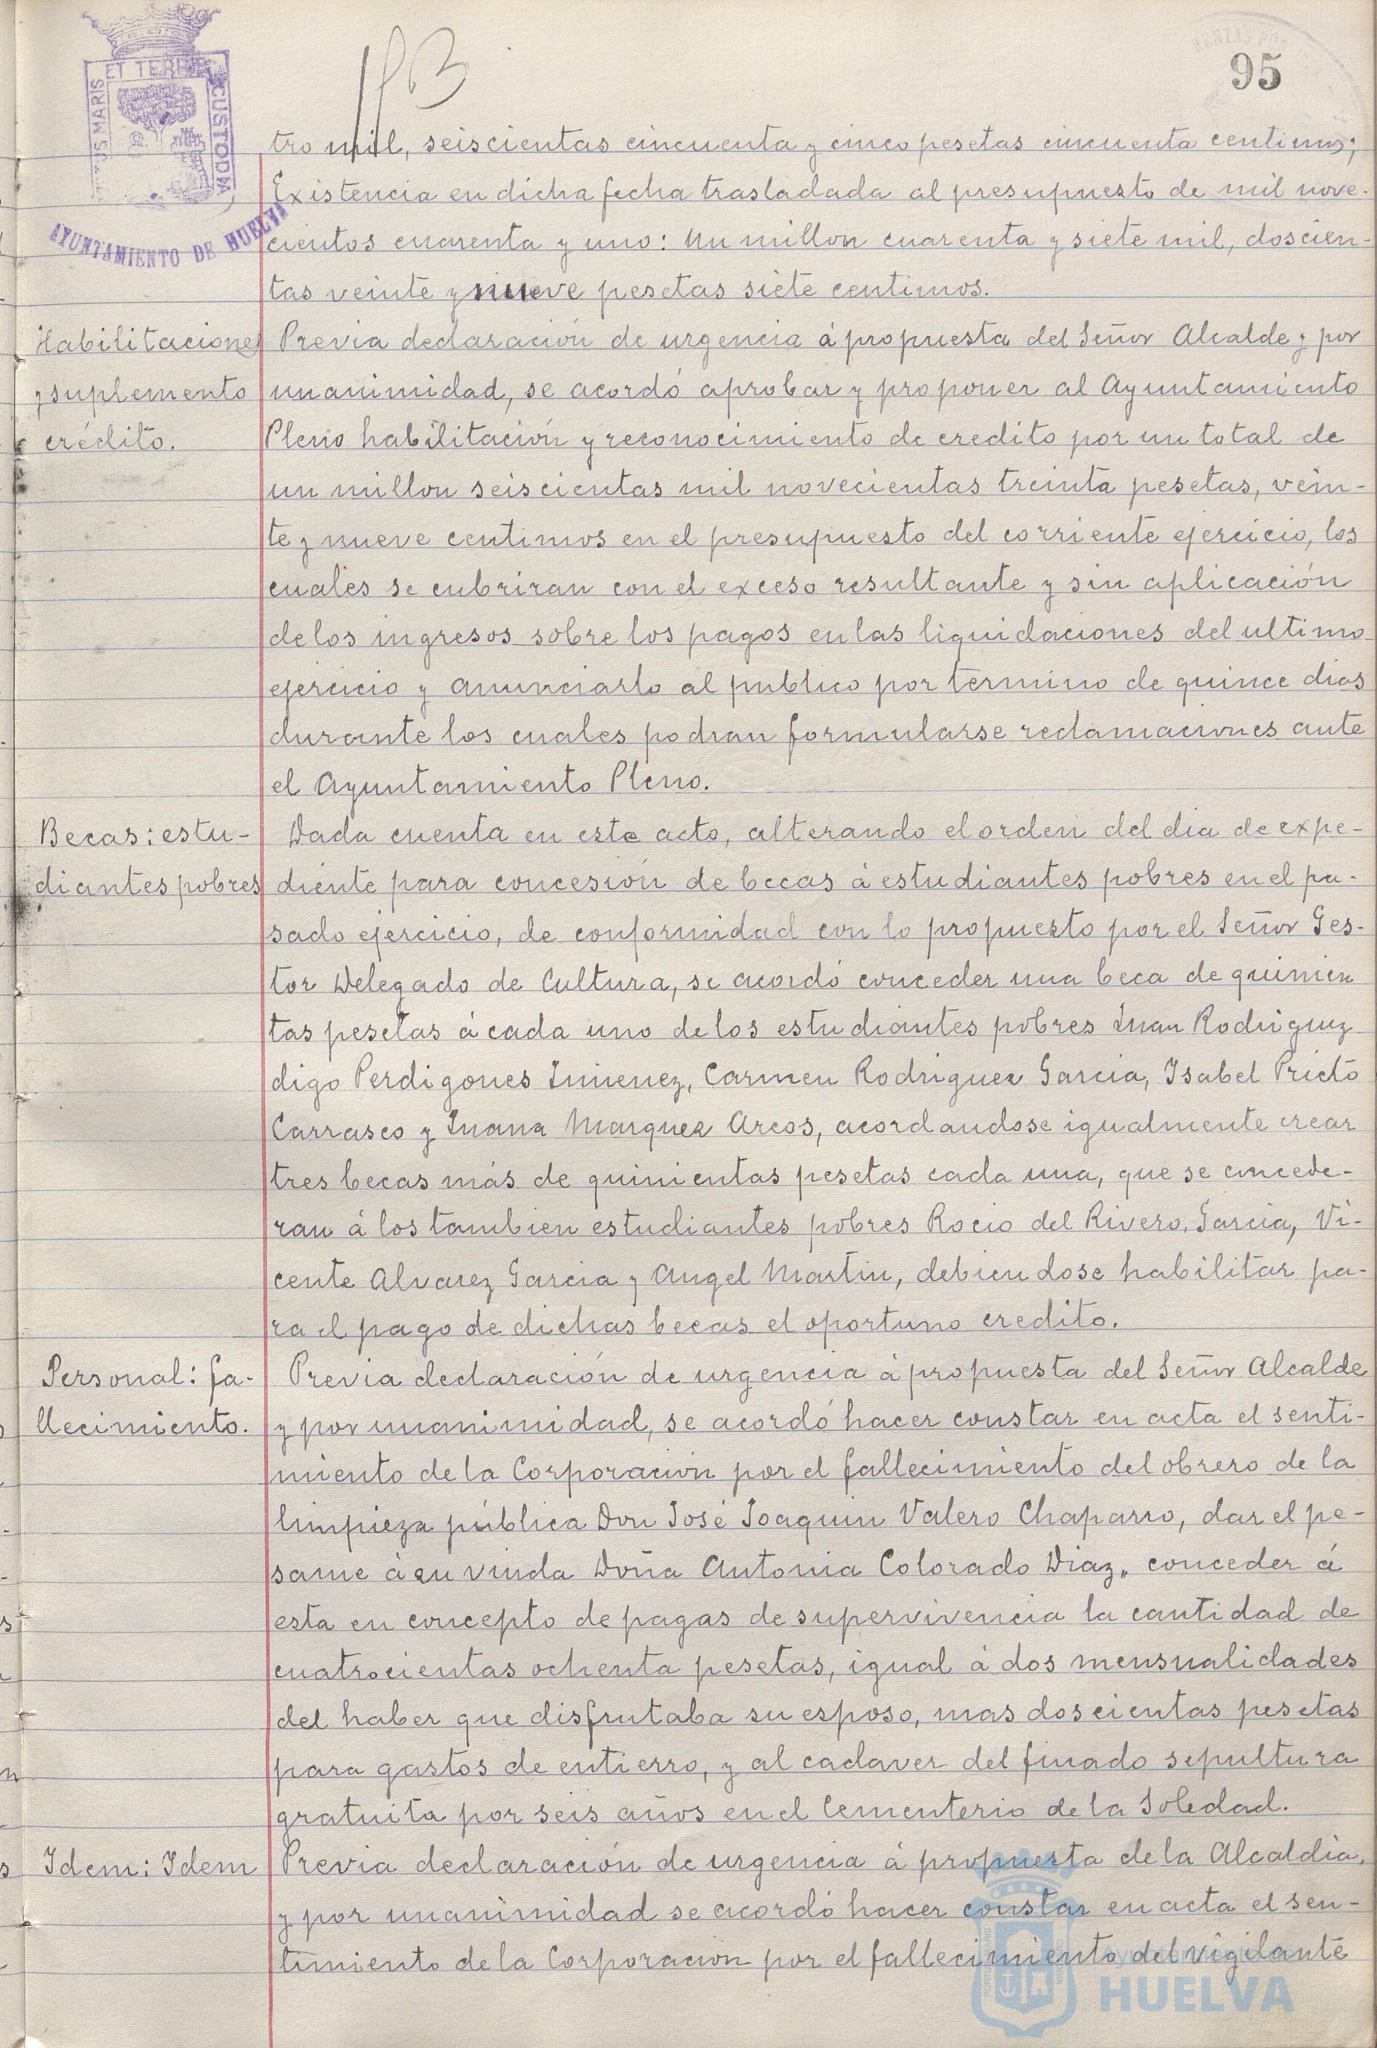 95
PORTUS MARIS ET TERRE CUSTODIA
AYUNTAMIENTO DE HUELVA
tro mil, seiscientas cincuenta y cinco pesetas cincuenta centimos;
Existencia en dicha fecha trasladada al presupuesto de mil nove-
cientos cuarenta y uno: Un millon cuarenta y siete mil, doscien-
tas veinte y nueve pesetas siete centimos.
Habilitaciones
y suplemento
crédito.
Previa declaración de urgencia á propuesta del Señor Alcalde y por
unanimidad, se acordó aprobar y proponer al Ayuntamiento
Pleno habilitación y reconocimiento de credito por un total de
un millon seiscientas mil novecientas treinta pesetas, vein-
te y nueve centimos en el presupuesto del corriente ejercicio, los
cuales se cubriran con el exceso resultante y sin aplicación
de los ingresos sobre los pagos en las liquidaciones del ultimo
ejercicio y anunciarlo al publico por termino de quince dias
durante los cuales podran formularse reclamaciones ante
el Ayuntamiento Pleno.
Becas: estu-
diantes pobres
Dada cuenta en este acto, alterando el orden del dia de expe-
diente para concesión de becas á estudiantes pobres en el pa-
sado ejercicio, de conformidad con lo propuesto por el Señor Ges-
tor Delegado de Cultura, se acordó conceder una beca de quinien
tas pesetas á cada uno de los estudiantes pobres Juan Rodriguez
digo Perdigones Jimenez, Carmen Rodriguez Garcia, Isabel Prieto
Carrasco y Juana Marquez Arcos, acordandose igualmente crear
tres becas más de quinientas pesetas cada una, que se concede-
ran á los tambien estudiantes pobres Rocio del Rivero, Garcia, Vi-
cente Alvarez Garcia y Angel Martin, debiendose habilitar pa-
ra el pago de dichas becas el oportuno credito.
Personal: fa-
llecimiento.
Previa declaración de urgencia á propuesta del Señor Alcalde
y por unanimidad, se acordó hacer constar en acta el senti-
miento de la Corporación por el fallecimiento del obrero de la
limpieza pública Don José Joaquin Valero Chaparro, dar el pe-
same à su viuda Doña Antonia Colorado Diaz, conceder á
esta en concepto de pagas de supervivencia la cantidad de
cuatrocientas ochenta pesetas, igual á dos mensualidades
del haber que disfrutaba su esposo, mas doscientas pesetas
para gastos de entierro, y al cadaver del finado sepultura
gratuita por seis años en el Cementerio de la Soledad.
Idem: Idem
Previa declaración de urgencia á propuesta de la Alcaldia,
y por unanimidad se acordó hacer constar en acta el sen-
timiento de la Corporación por el fallecimiento del vigilante
HUELVA